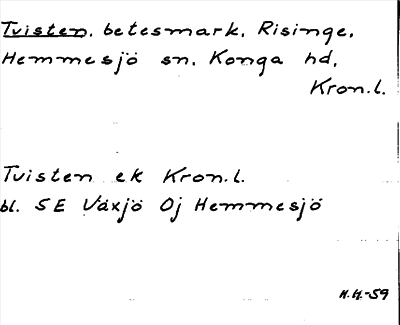 Tvisten, betesmark, Risinge,
Hemmesjö sn, Konga hd,
Kron.l.
Tvisten ek Kron.l.
bl. SE Växjö Oj Hemmesjö
H.H.-59